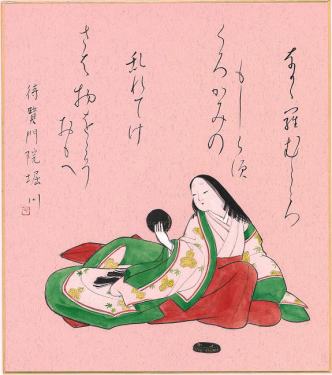 なかゝ羅むこゝろ
もしら須
くろかみの
乱れてけ
さは物をこそ
おもへ
待賢門院堀川